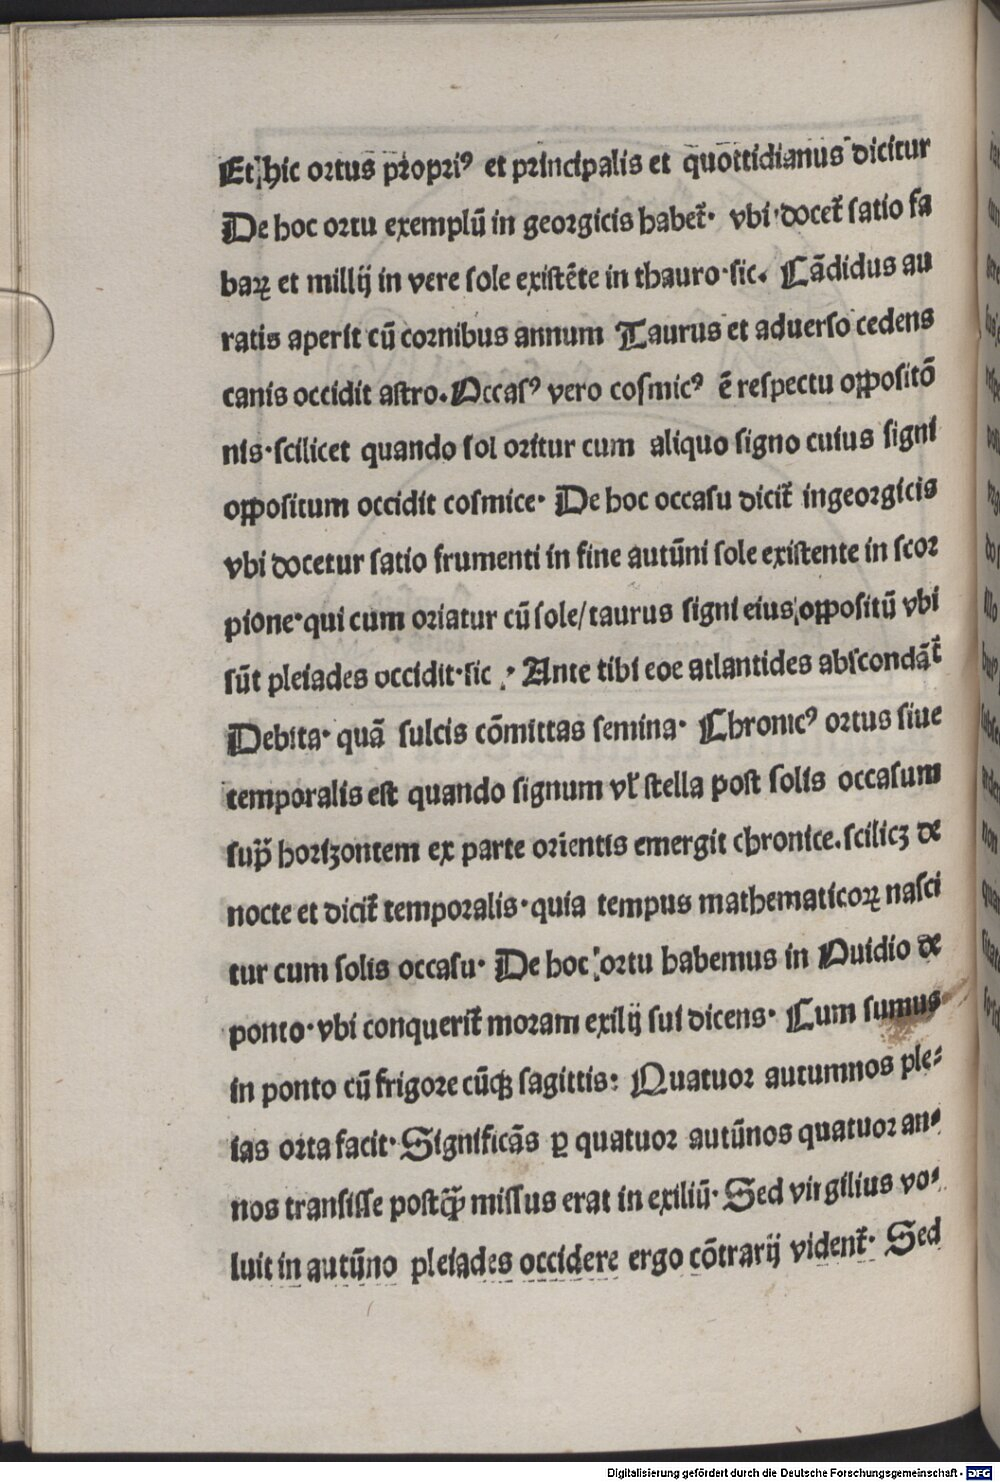 Et hic ortus propriꝰ et principalis et quottidianus dicitur
De hoc ortu exemplū in georgicis habet᷑· vbi docet᷑ satio fa
baꝝ et millij in vere sole existēte in thauro·sic. Cādidus au
ratis aperit cū cornibus annum Taurus et aduerso cedens
canis occidit astro. Occasꝰ vero cosmicꝰ ē respectu oppositō
nis·scilicet quando sol oritur cum aliquo signo cuius signi
oppositum occidit cosmice· De hoc occasu dicit᷑ ingeorgicis
vbi docetur satio frumenti in fine autūni sole existente in scor
pione·qui cum oriatur cū sole/taurus signi eius oppositū vbi
sūt pleiades occidit·sic ·Ante tibi eoe atlantides abscondāt᷑
Debita· quā sulcis cōmittas semina· Chronicꝰ ortus siue
temporalis est quando signum vl̓ stella post solis occasum
sup̄ horizontem ex parte orientis emergit chronice.scilicꝫ de
nocte et dicit᷑ temporalis·quia tempus mathematicoꝝ nasci
tur cum solis occasu· De hoc ortu habemus in Ouidio de
ponto·vbi conquerit᷑ moram exilij sui dicens· Cum sumus
in ponto cū frigore cūqꝫ sagittis: Quatuor autumnos ple⸗
ias orta facit·Significās ꝑ quatuor autūnos quatuor an⸗
nos transisse postꝙ̄ missus erat in exiliū· Sed virgilius vo⸗
luit in autūno pleiades occidere ergo cōtrarij vident᷑· Sed
Digitalisierung gefördert durch die Deutsche Forschungsgemeinschaft - DFG